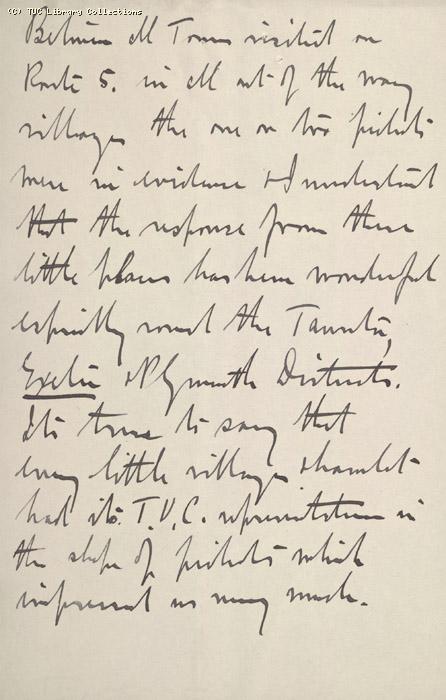 (C) TUC Library Collections
Between all Towns visited on
Route 5. in all out of the way
villages the one or two pickets
were in evidence & I understand
that the response from these
little places has been wonderful
especially round the Taunton,
Exeter & Plymouth Districts.
Its true to say that
every little village & hamlet
had its. T.U.C. representation in
the shape of pickets which
impressed us very much.